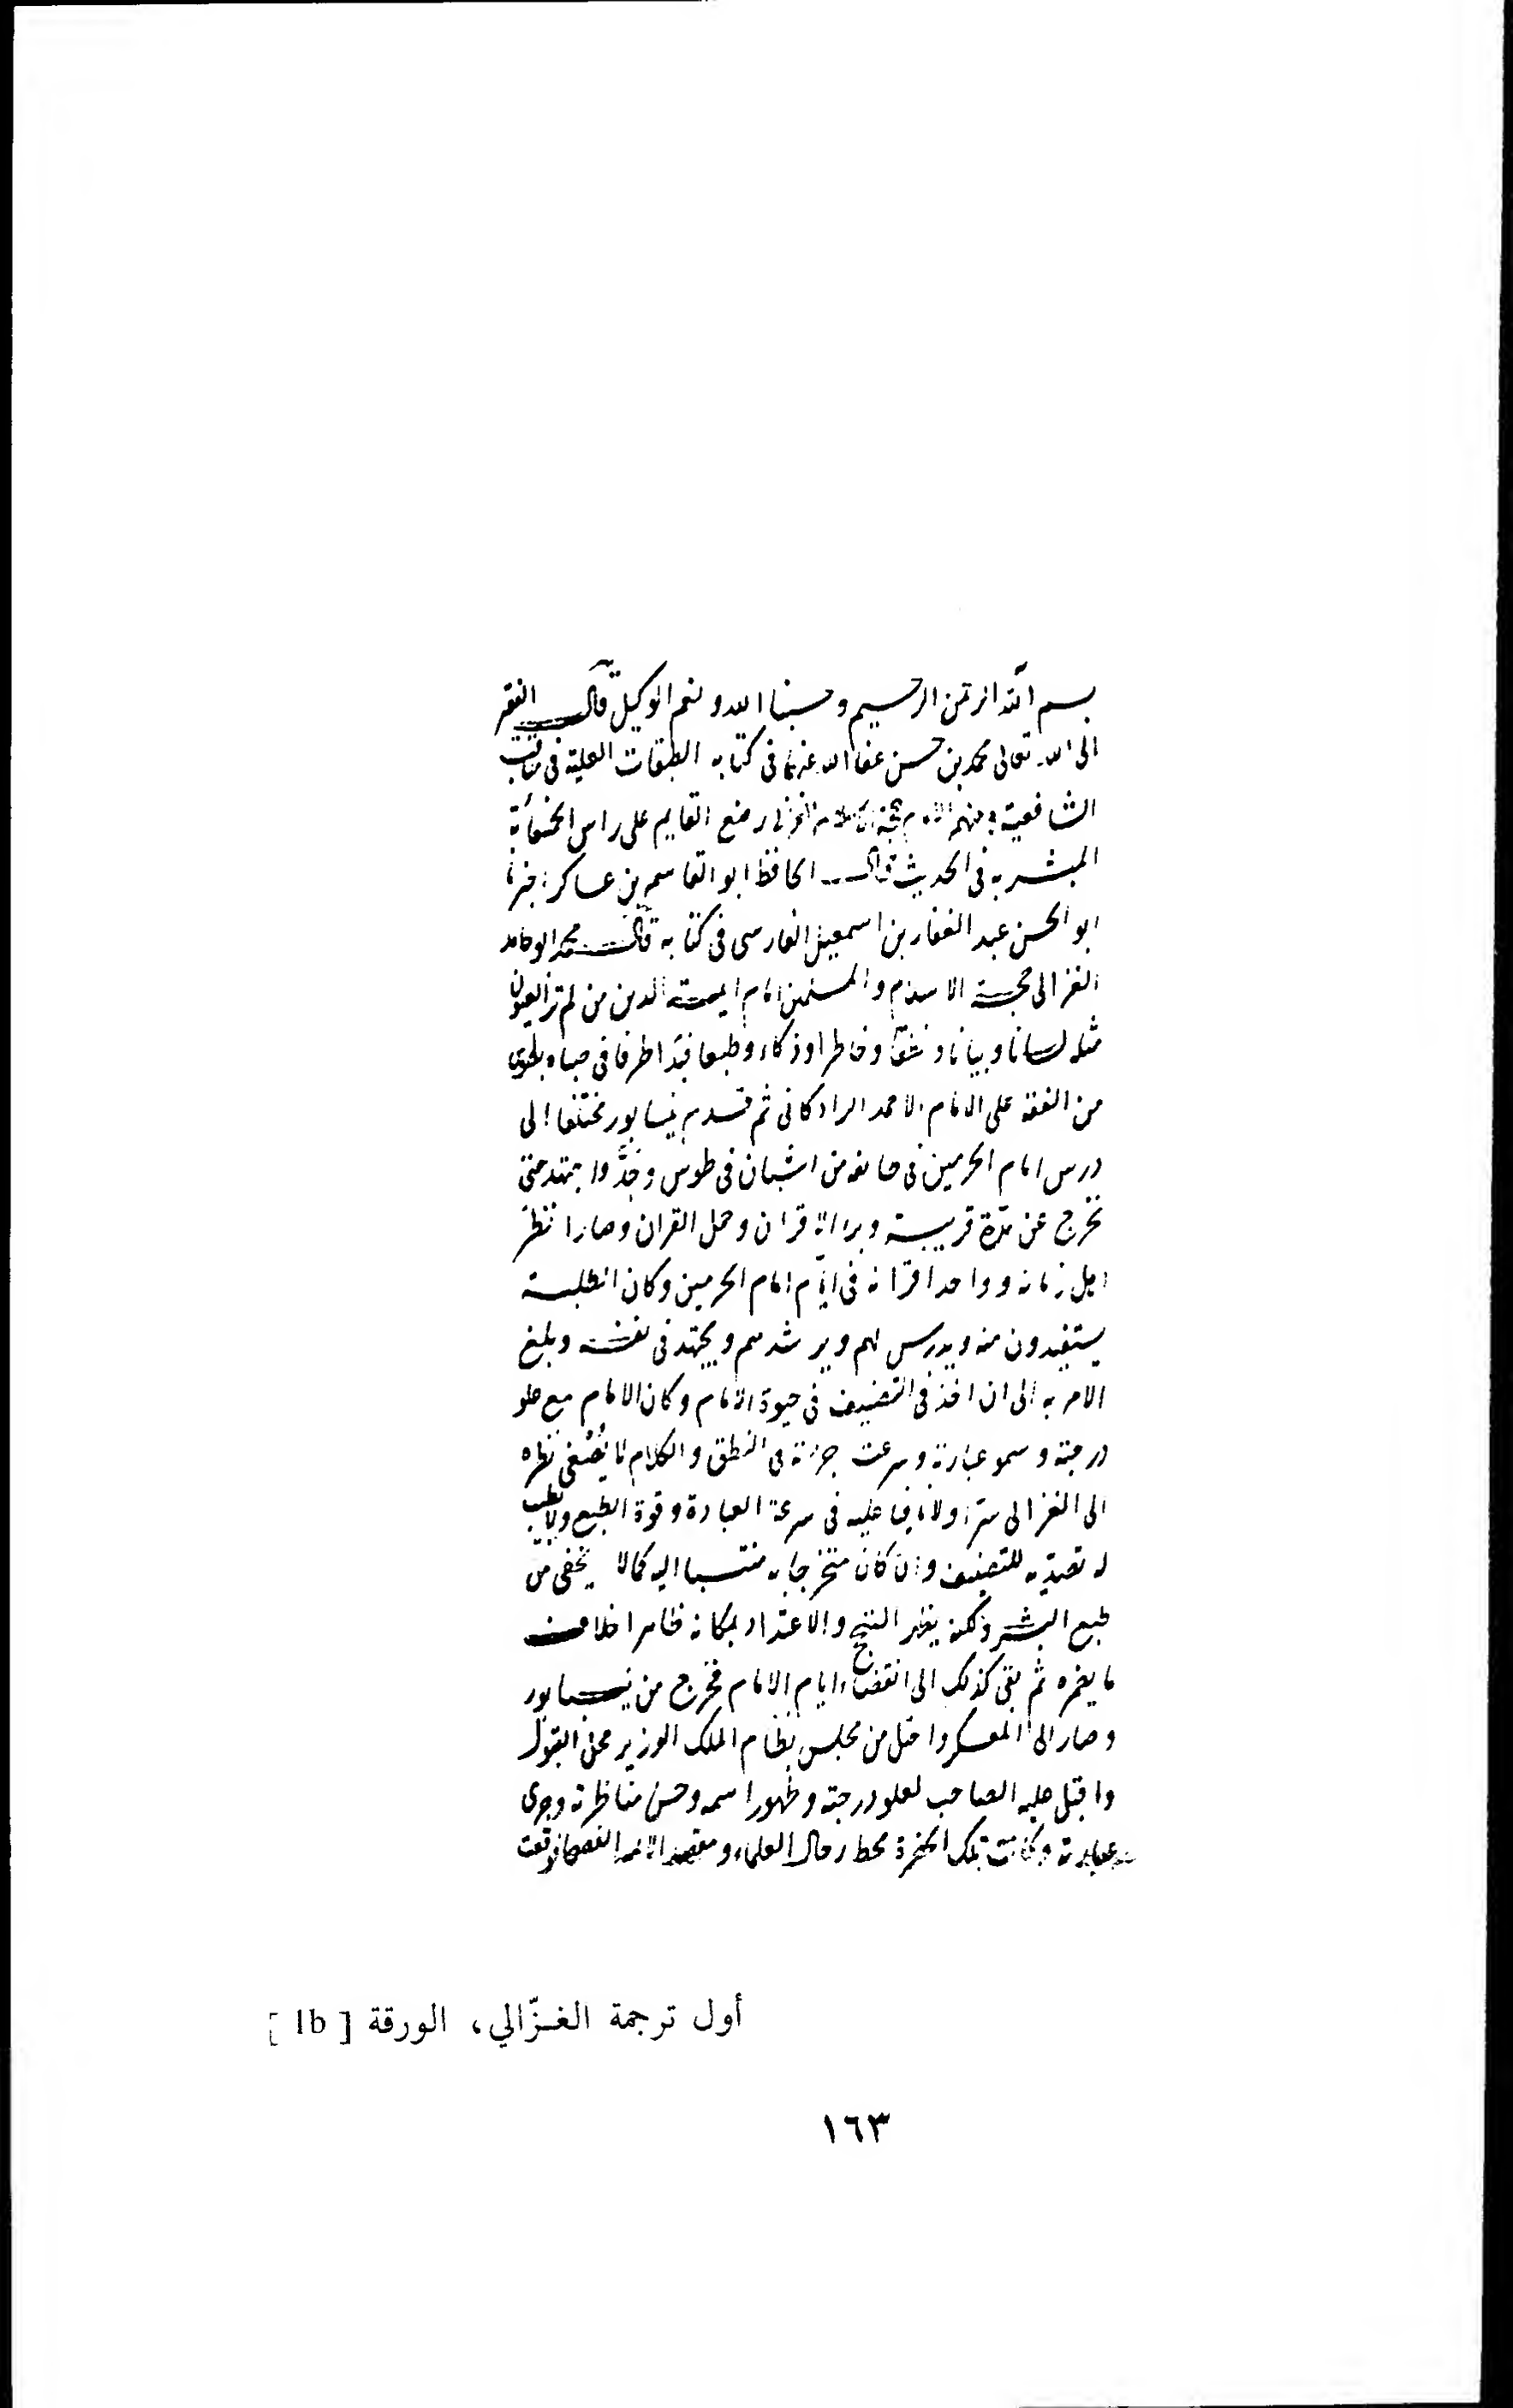 بسم الله الرحمن الرحيم وحسبنا الله ونعم الوكيل قال الفقير
الى الله تعالى محمد بن حسن عفا الله عنهما فى كتابه الطبقات العلية فى مناقب
الشافعية ومنهم الامام حجة الاسلام الغزالى رضع القايم على راس الخمسمأية
المبشر به فى الحديث قال الحافظ ابو القاسم بن عساكر اخبرنا
ابو الحسن عبد الغفار بن اسمعيل الفارسى فى كتابه قال محمد ابو حامد
الغزالى حجة الاسلام والمسلمين امام ايمة الدين من لم تر العيون
مثله لسانا وبيانا ونطقا وخاطرا وذكاء وطبعا فبدا طرفا فى صباه بطوس
من الفقه على الامام الاحمد الرادكانى ثم قدم نيسابور مختلفا الى
درس امام الحرمين فى طائفة من الشبان فى طوس وجدَّ واجتهد حتى
تخرج عن مدة قريبة وبرا الاقران وحمل القران وصار انظر
اهل زمانه وواحد اقرانه فى ايام امام الحرمين وكان الطلبة
يستفيدون منه ويدرس لهم ويرشدهم ويجتهد فى نفسه وبلغ
الامر به الى ان اخذ فى التصنيف فى حيوة الامام وكان الامام مع علو
درجته وسمو عبارته وسرعت جريه فى النطق والكلام لا يُصْغى نظره
الى الغزالى سترا ولانافيا عليه فى سرعة العبارة وقوة الطبع ولا يطيب
له تصديه للتصنيف وان كان متخرجا به منتسبا اليه كمالا يخفى من
طبع البشر ولكنه يظهر التبجح والاعتداد بمكانه ظاهرا خلاف
ما يضمره ثم بقى كذلك الى انقضاء ايام الامام فخرج من نيسابور
وصار الى المعسكر واحتل من مجلس نظام الملك الوزير محل القبول
واقبل عليه الصاحب لعلو درجته وظهور اسمه وحسن مناظرته وجرى
عبارته وكانت تلك الحضرة محط رحال العلماء ومقصد الائمه الفصحا فوقعت
أول ترجمة الغـزّالي، الورقة [ 1b ]
١٦٣